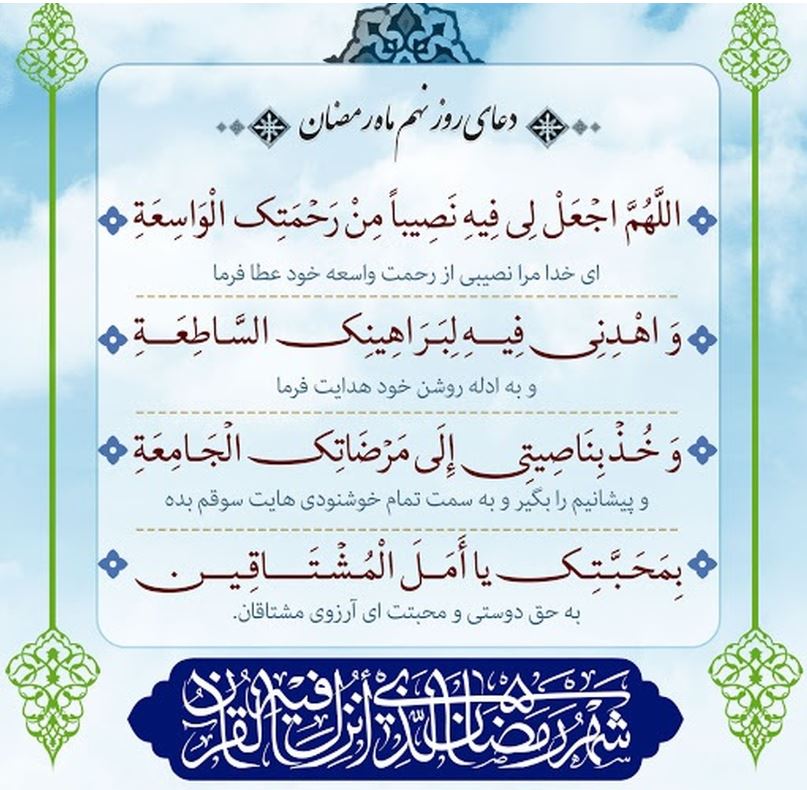 دعای روز نهم ماه رمضان
اللَّهُمَّ اجْعَلْ لِی فِیهِ نَصِیباً مِنْ رَحْمَتِک الْوَاسِعَةِ
ای خدا مرا نصیبی از رحمت واسعه خود عطا فرما
وَ اهْدِنِی فِیهِ لِبَرَاهِینِک السَّاطِعَةِ
و به ادله روشن خود هدایت فرما
وَ خُذْ بِنَاصِیتِی إِلَی مَرْضَاتِک الْجَامِعَةِ
و پیشانیم را بگیر و به سمت تمام خوشنودی هایت سوقم بده
بِمَحَبَّتِک یا أَمَلَ الْمُشْتَاقِینَ.
به حق دوستی و محبتت ای آرزوی مشتاقان.
شَهْرُ رَمَضَانَ الَّذِي أُنْزِلَ فِيهِ الْقُرْآنُ